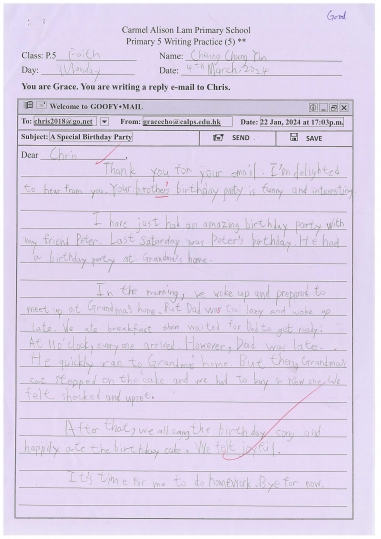 Good
Carmel Alison Lam Primary School
Primary 5 Writing Practice (5) **
Class: P.5 Faith Name: Chung Chung Yin
Day: Monday Date: 4th March, 2024
You are Grace. You are writing a reply e-mail to Chris.
Welcome to GOOFY•MAIL
To: chris2018@go.net From: graceecho@calps.edu.hk Date: 22 Jan, 2024 at 17:03p.m.
Subject: A Special Birthday Party SEND SAVE
Dear Chris
Thank you for your email. I'm delighted
to hear from you. Your brother's birthday party is funny and interesting
I have just had an amazing birthday party with
my friend Peter. Last Saturday was Peter's birthday. He had
a birthday party at Grandma's home.
In the morning, we woke up and prepared to
meet up at Grandma's home. But Dad was too lazy and woke up
late. We ate breakfast and waited for Dad to get ready.
At 11 o'clock, everyone arrived. However, Dad was late.
He quickly ran to Grandma's home. But then, Grandma's
cat stepped on the cake and we had to buy a new one. We
felt shocked and upset.
After that, we all sang the birthday song and
happily ate the birthday cake. We felt joyful.
It's time for me to do homework. Bye for now.